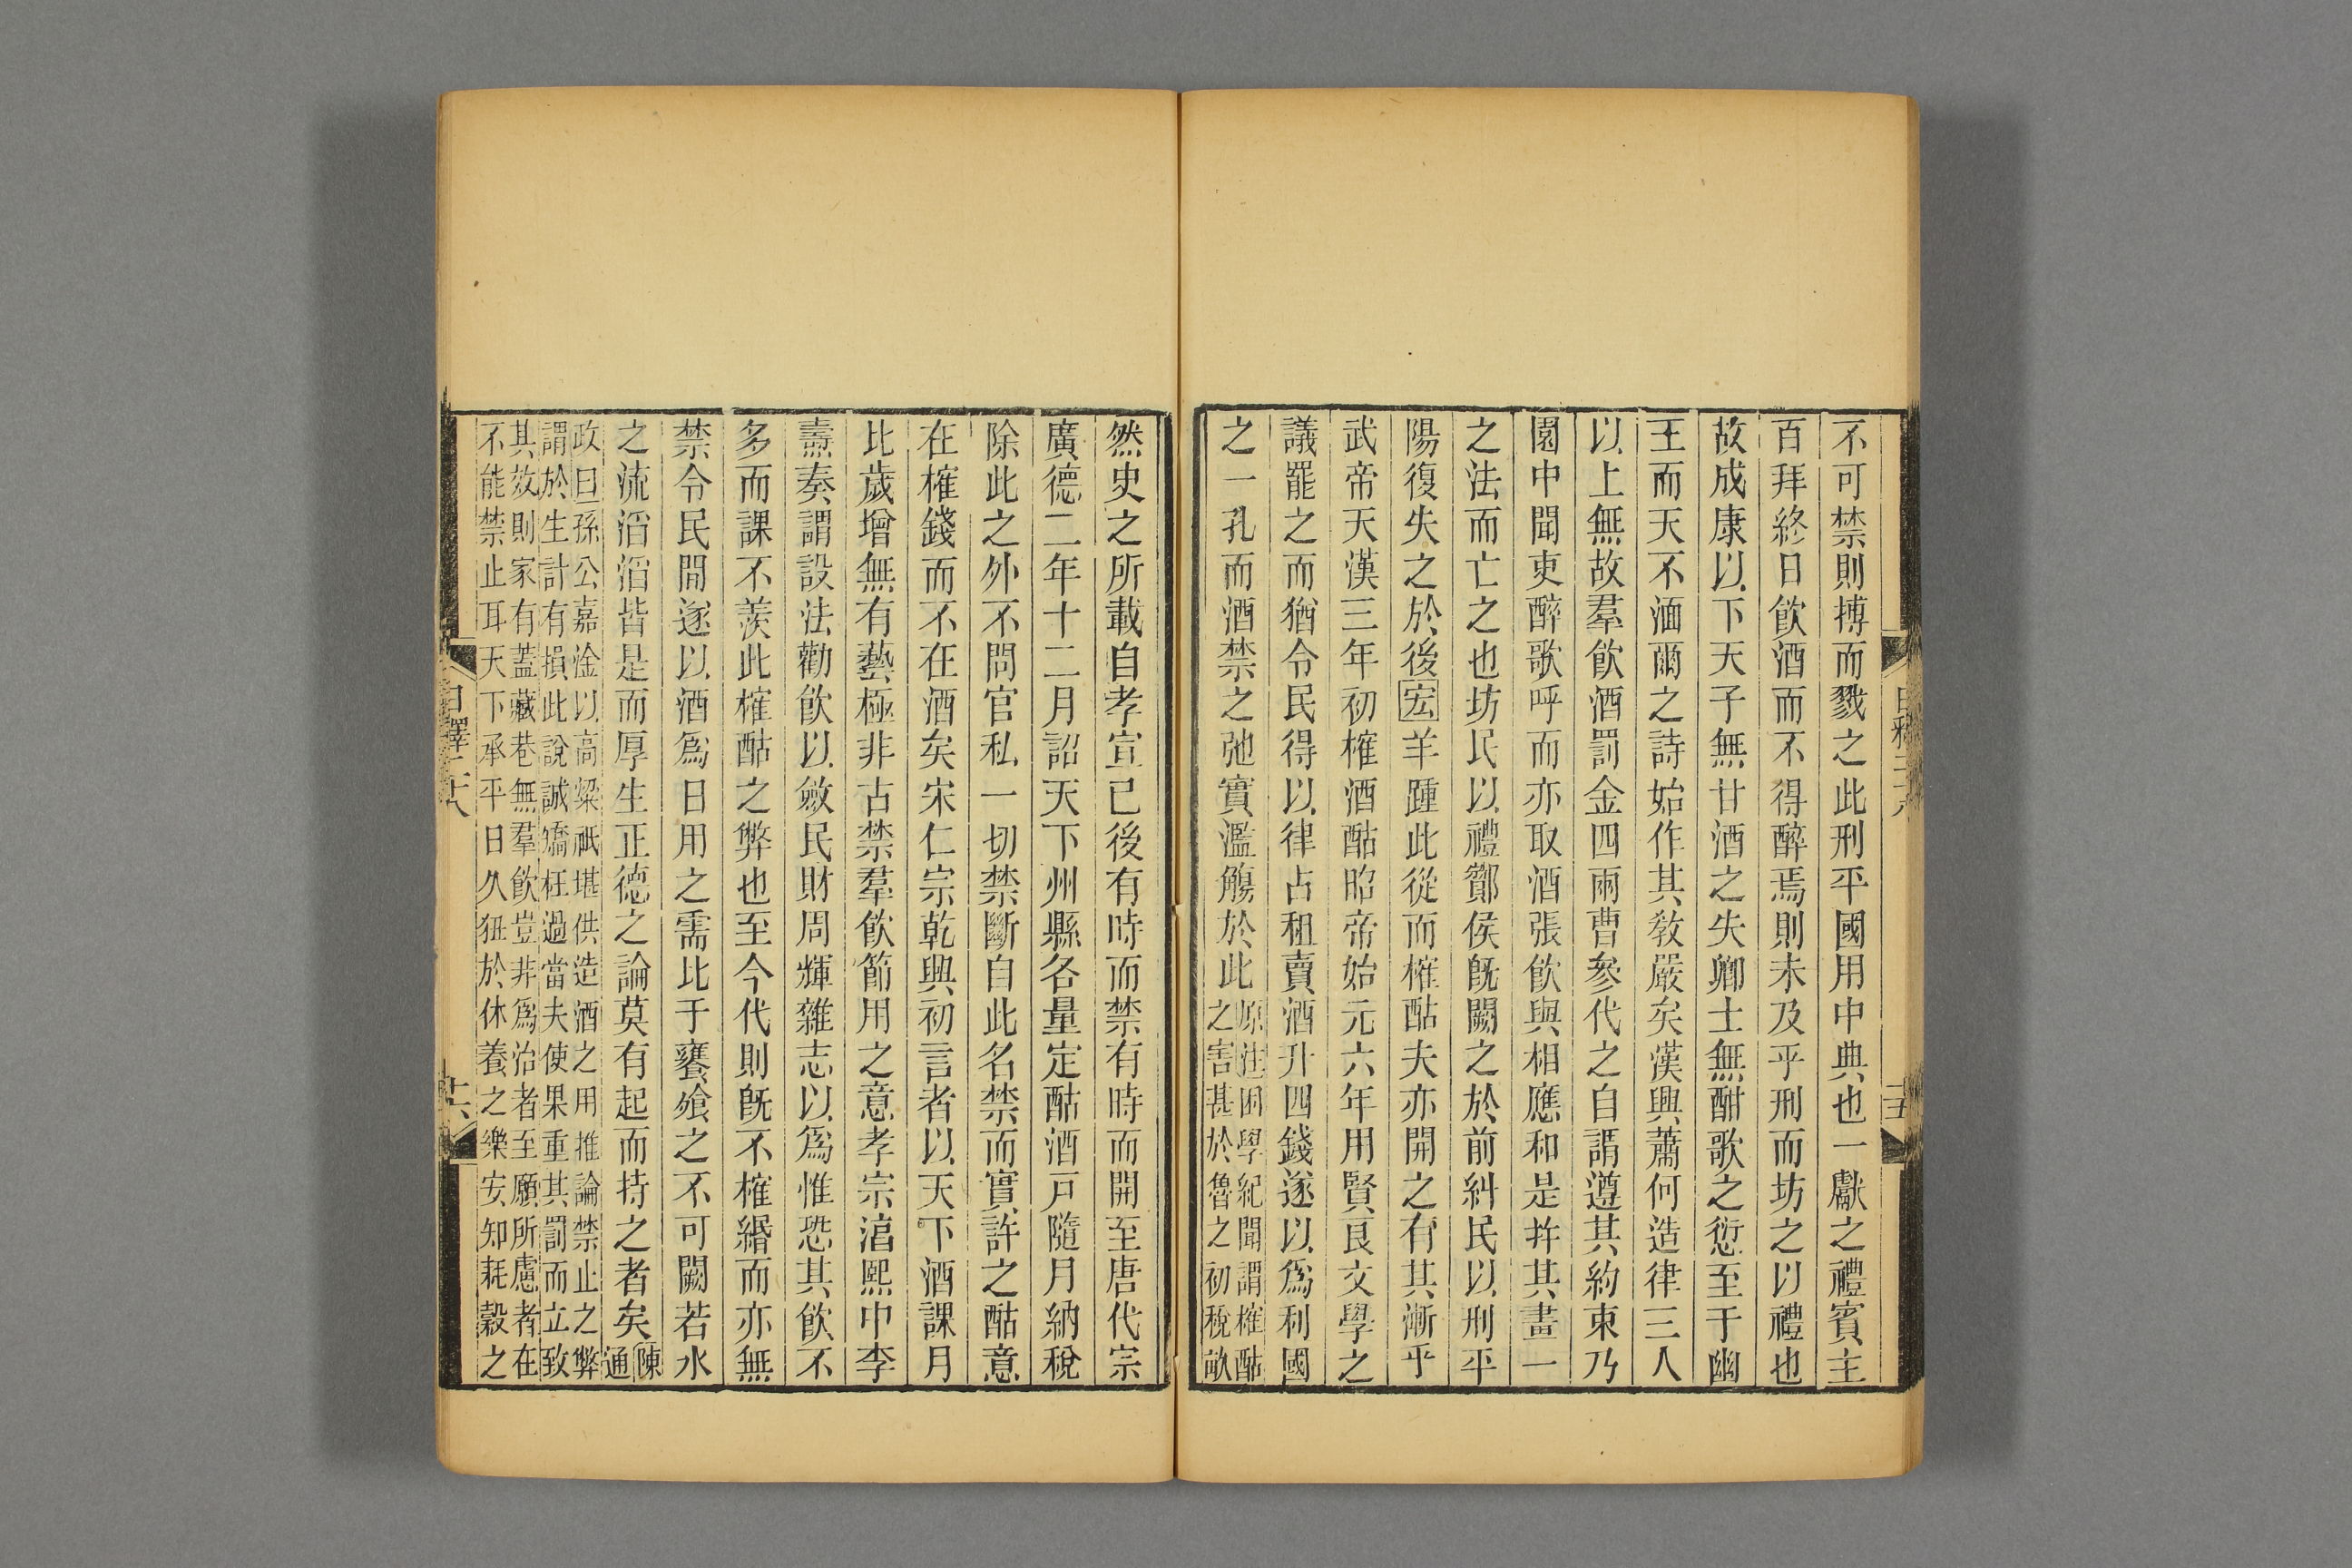 不可禁則搏而戮之此刑平國用中典也一獻之禮賓主
百拜終日飮酒而不得醉焉則未及乎刑而坊之以禮也
故成康以下天子無甘酒之失卿士無酣歌之愆至于幽
王而天不湎爾之詩始作其敎嚴矣漢興蕭何造律三人
以上無故羣飮酒罰金四兩曹參代之自謂遵其約束乃
園中聞吏醉歌呼而亦取酒張飮與相應和是幷其畫一
之法而亡之也坊民以禮酇侯旣闕之於前糾民以刑平
陽復失之於後宏羊踵此從而榷酤夫亦開之有其漸乎
武帝天漢三年初榷酒酤昭帝始元六年用賢良文學之
議罷之而猶令民得以律占租賣酒升四錢遂以爲利國
之一孔而酒禁之弛實濫觴於此
原注困學紀聞謂榷酤
之害甚於魯之初稅畝
然史之所載自孝宣已後有時而禁有時而開至唐代宗
廣德二年十二月詔天下州縣各量定酤酒戸隨月納稅
除此之外不問官私一切禁斷自此名禁而實許之酤意
在榷錢而不在酒矣宋仁宗乾興初言者以天下酒課月
比歲增無有藝極非古禁羣飮節用之意孝宗淳熙中李
燾奏謂設法勸飮以斂民財周輝雜志以爲惟恐其飮不
多而課不羨此榷酤之弊也至今代則旣不榷緡而亦無
禁令民間遂以酒爲日用之需比于饔飱之不可闕若水
之流滔滔皆是而厚生正德之論莫有起而持之者矣
陳
通
政曰孫公嘉淦以高粱祇堪供造酒之用推論禁止之弊
謂於生計有損此說誠矯枉過當夫使果重其罰而立致
其效則家有蓋藏巷無羣飮豈非爲治者至願所慮者在
不能禁止耳天下承平日久狃於休養之樂安知耗穀之
十六